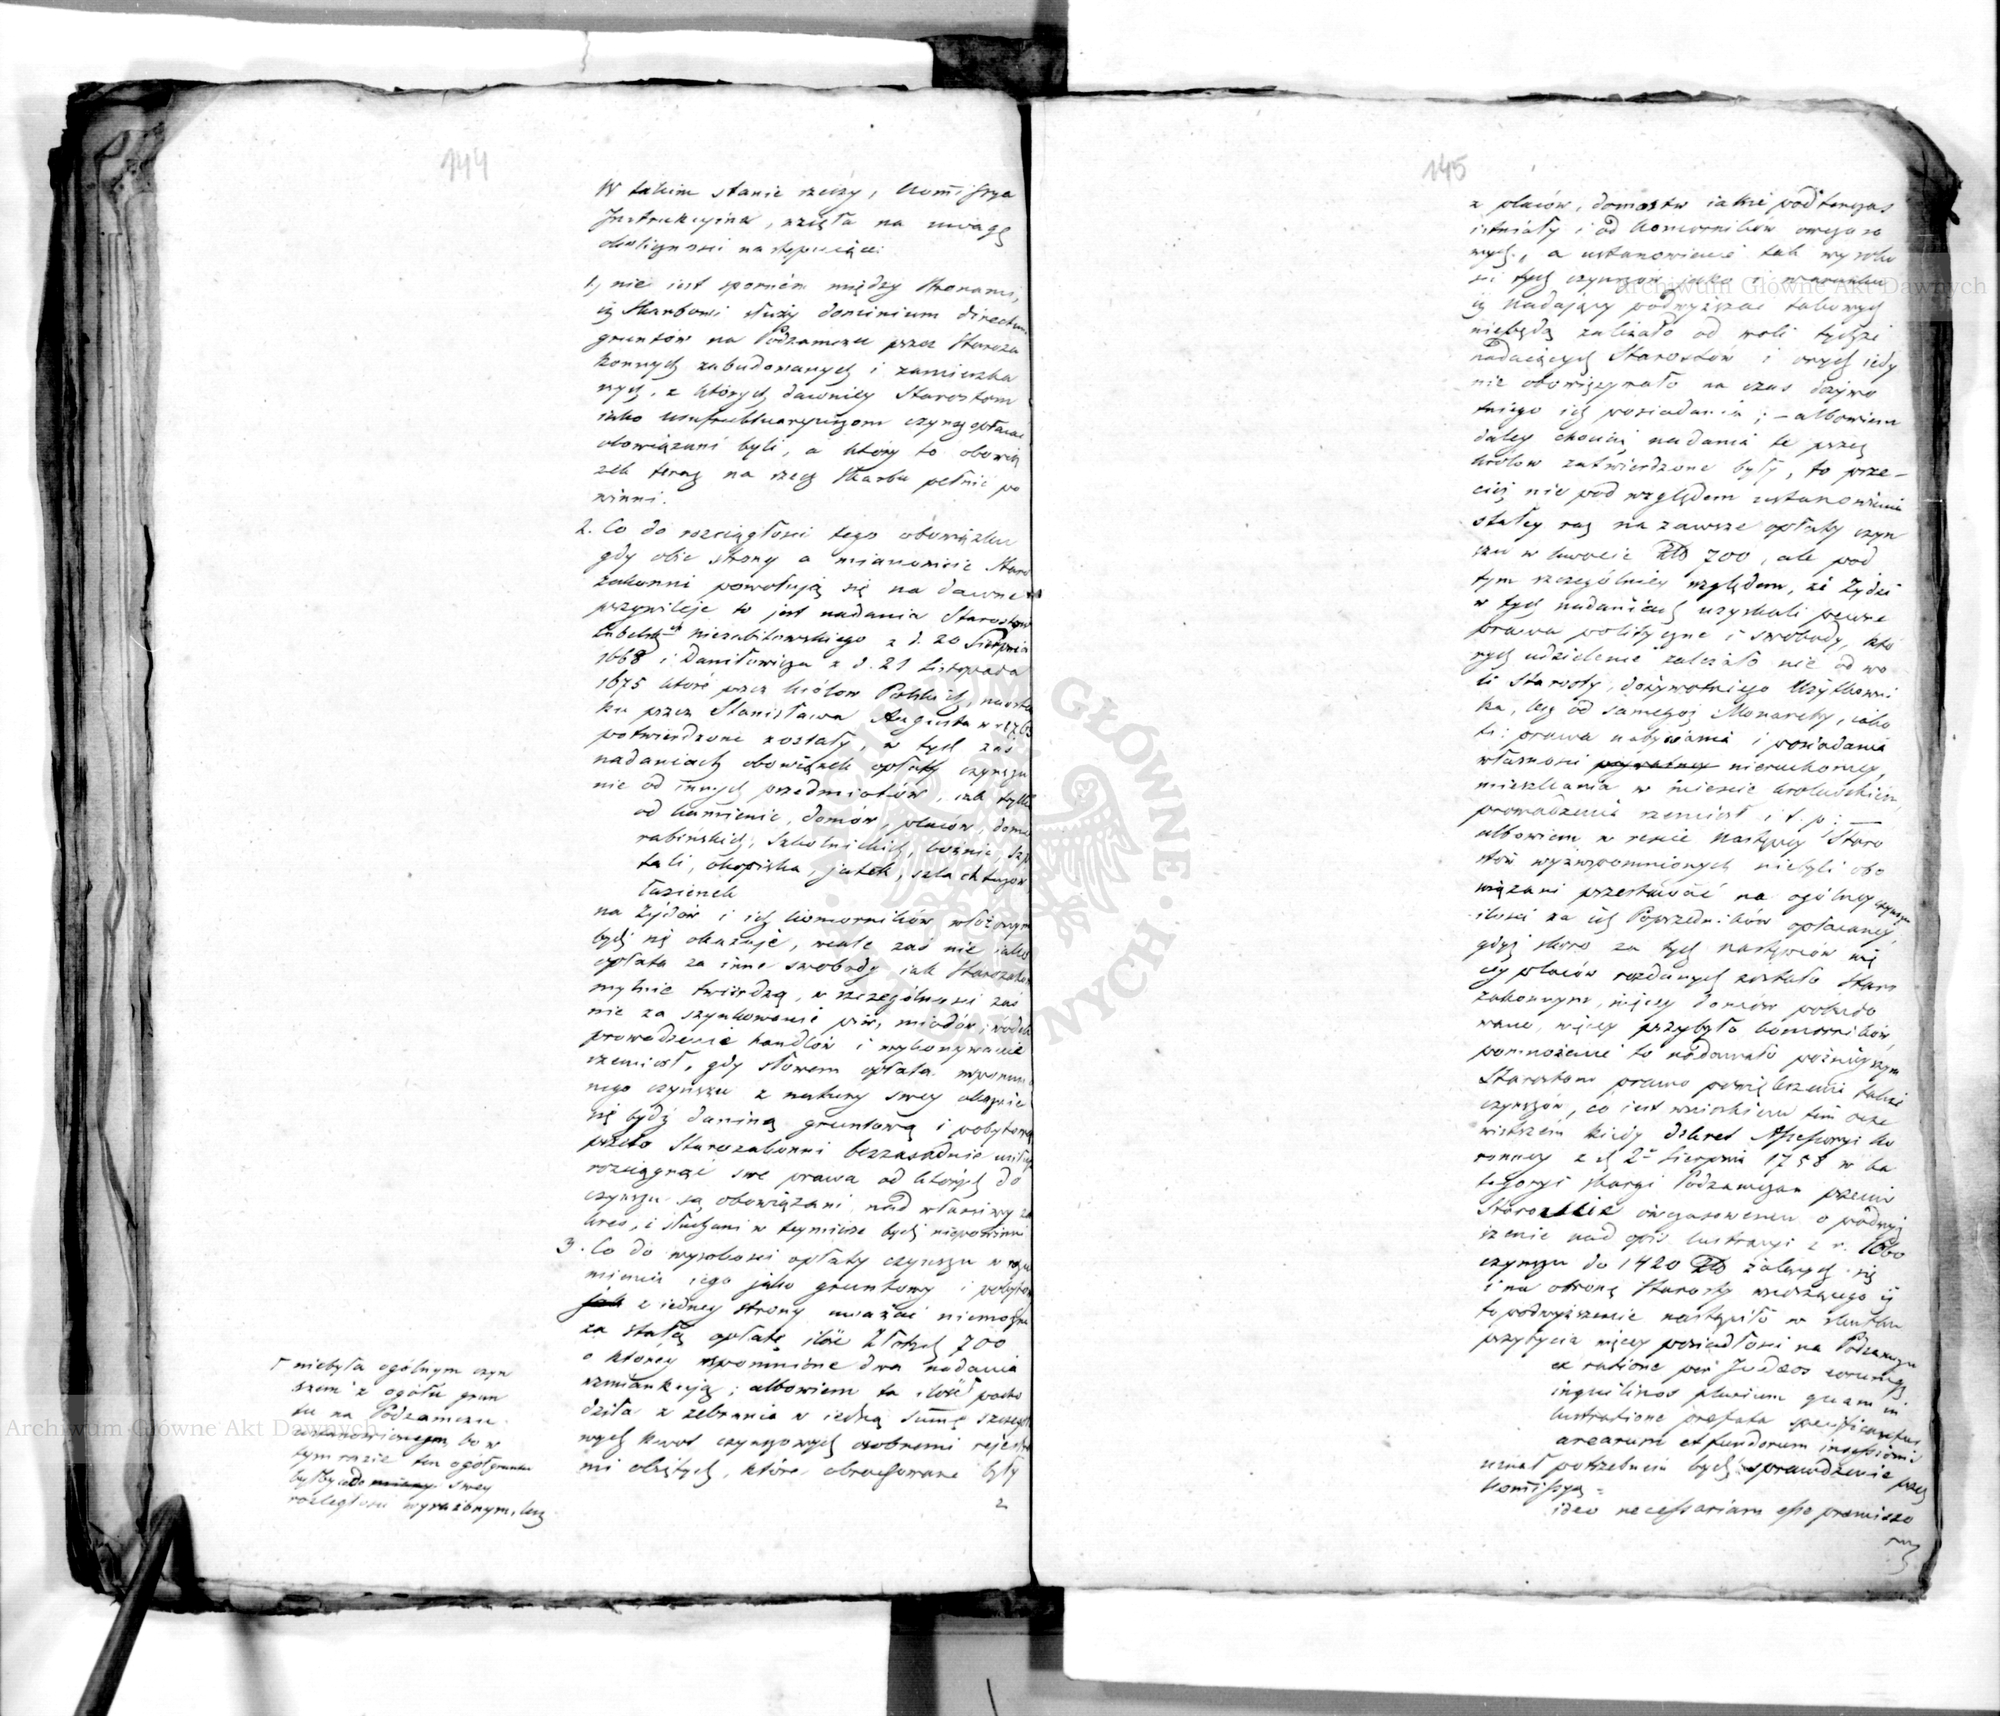 144
W takim stanie rzeczy, Kommissya
Instrukcyina, wzięła na uwagę
okoliczności następujące:
1, nie iest sporném między Stronami,
iż Skarbowi służy dominium directum
gruntów na Podzamczu przez Staroza
konnych zabudowanych i zamieszka
nych, z których dawniey Starostom
iako usufruktuaryuszom czynsz opłacać
obowiązani byli, a który to obowią
zek teraz na rzecz Skarbu pełnić po
winni.
2. Co do rozciągłości tego obowiązku
gdy obie strony a mianowicie Staro
zakonni powołują się na dawne
przywileje to jest nadania Starostów
Lubelskich Niezabitowskiego z d. 20 Sierpnia
1668 i Daniłowicza z d. 21 Listopada
1675 które przez Królow Polskich, naosta
tku przez Stanisława Augusta w r.
potwierdzone zostały, w tych zaś
nadaniach obowiązek opłaty czynszu
nie od innych przedmiotów, iak tylko
od kamienic, domów, placów, domu
rabińskich, szkolnickich, bożnic, szpi
tali, okopiska, jatek, szlachtuzów
łazienek
na Żydów i ich komorników włożonym
bydź się okazuje, wcale zaś nie iako
opłata za inne swobody iak Starozakon
mylnie twierdzą, w szczególności zaś
nie za szynkowanie piw, miodów, wódek
prowadzenie handlów i wykonywanie
rzemiosł, gdy słowem opłata wspomnio
nego czynszu z natury swey okazuie
się bydź daniną gruntową i pobytową
przeto Starozakonni bezzasadnie usiłują
rozciągnąć swe prawa od których do
czynszu są obowiązani nad właściwy za
kres, i słuchani w teymierze bydź niepowinni
3. Co do wysokości opłaty czynszu w rozu
mieniu iego jako gruntowy i pobytowy
z iedney strony uważać niemożna
za stałą opłatę ilość Złotych 700
o którey wspomnione dwa nadania
wzmiankują; albowiem ta ilość pocho
dziła z zebrania w iedną summę szczegóło
wych kwot czynszowych osobnemi rejestra
mi obiętych, które obrachowane były
z
┌ niebyła ogólnym czyn
szem z ogółu grun
tu na Podzamczu
bo w
tym razie ten ogół gruntu
byłby co do swey
rozległości wyrażonym, lecz
145
z placów, domostw iakie podtenczas
istniały i od komorników owczaso
wych, a ustanowienie tak wysoko
ści tych czynszów iako i warunku
iż nadający podwyższać takowych
niebędą zależało od woli tychże
nadaiących Starostów i onych iedy
nie obowiązywało na czas dożywo
tniego ich posiadania; - albowiem
daley chociaż nadania te przez
królow zatwierdzone były, to prze-
cież nie pod względem ustanowienia
stałey raz na zawsze opłaty czyn
szu w kwocie Złp 700, ale pod
tym szczególniey względem, że Żydzi
w tych nadaniach uzyskali pewne
prawa polityczne i swobody, któ
rych udzielenie zależało nie od wo
li Starosty, dożywotniego Użytkowni
ka, lecz od samegoż Monarchy, iako
to: prawa nabywania i posiadania
własności nieruchomey,
mieszkania w mieście królewskiém,
prowadzenia rzemiosł i t. p: -
albowiem w reszcie Następcy Staro
stów wyżwspomnionych niebyli obo
wiązani przestawać na ogólney czynszu
ilości za ich Poprzedników opłacaney,
gdyż skoro za tych następców wię
cey placów rozdanych zostało Staro
zakonnym, więcey domów pobudo
wano, więcey przybyło komorników,
pomnożenie to nadawało późnieyszym
Starostom prawo powiększenia także
czynszów, co iest wnioskiem tém oczy
wistszém kiedy dekret Assessoryi Ko
ronney z d. 2º Sierpnia 1758 w ka
tegoryi skargi Podzamczan przeciw
Staroście ówczasowemu o podwyż
szenie nad opis lustracyi z r. 1660
czynszu do 1420 Złp żalących się
i na obronę Starosty wnoszącego iż
to podwyższenie nastąpiło w skutku
przybycia więcey posiadłości na Podzamczu
ex ratione per Judæos eorumq
inquilinos plurium quam in
lustratione præfata specificantur
arearum et fundorum insessionis
uznał potrzebném bydź sprawdzenie przez
Kommissyą =
ideo necessariam esse præmisso